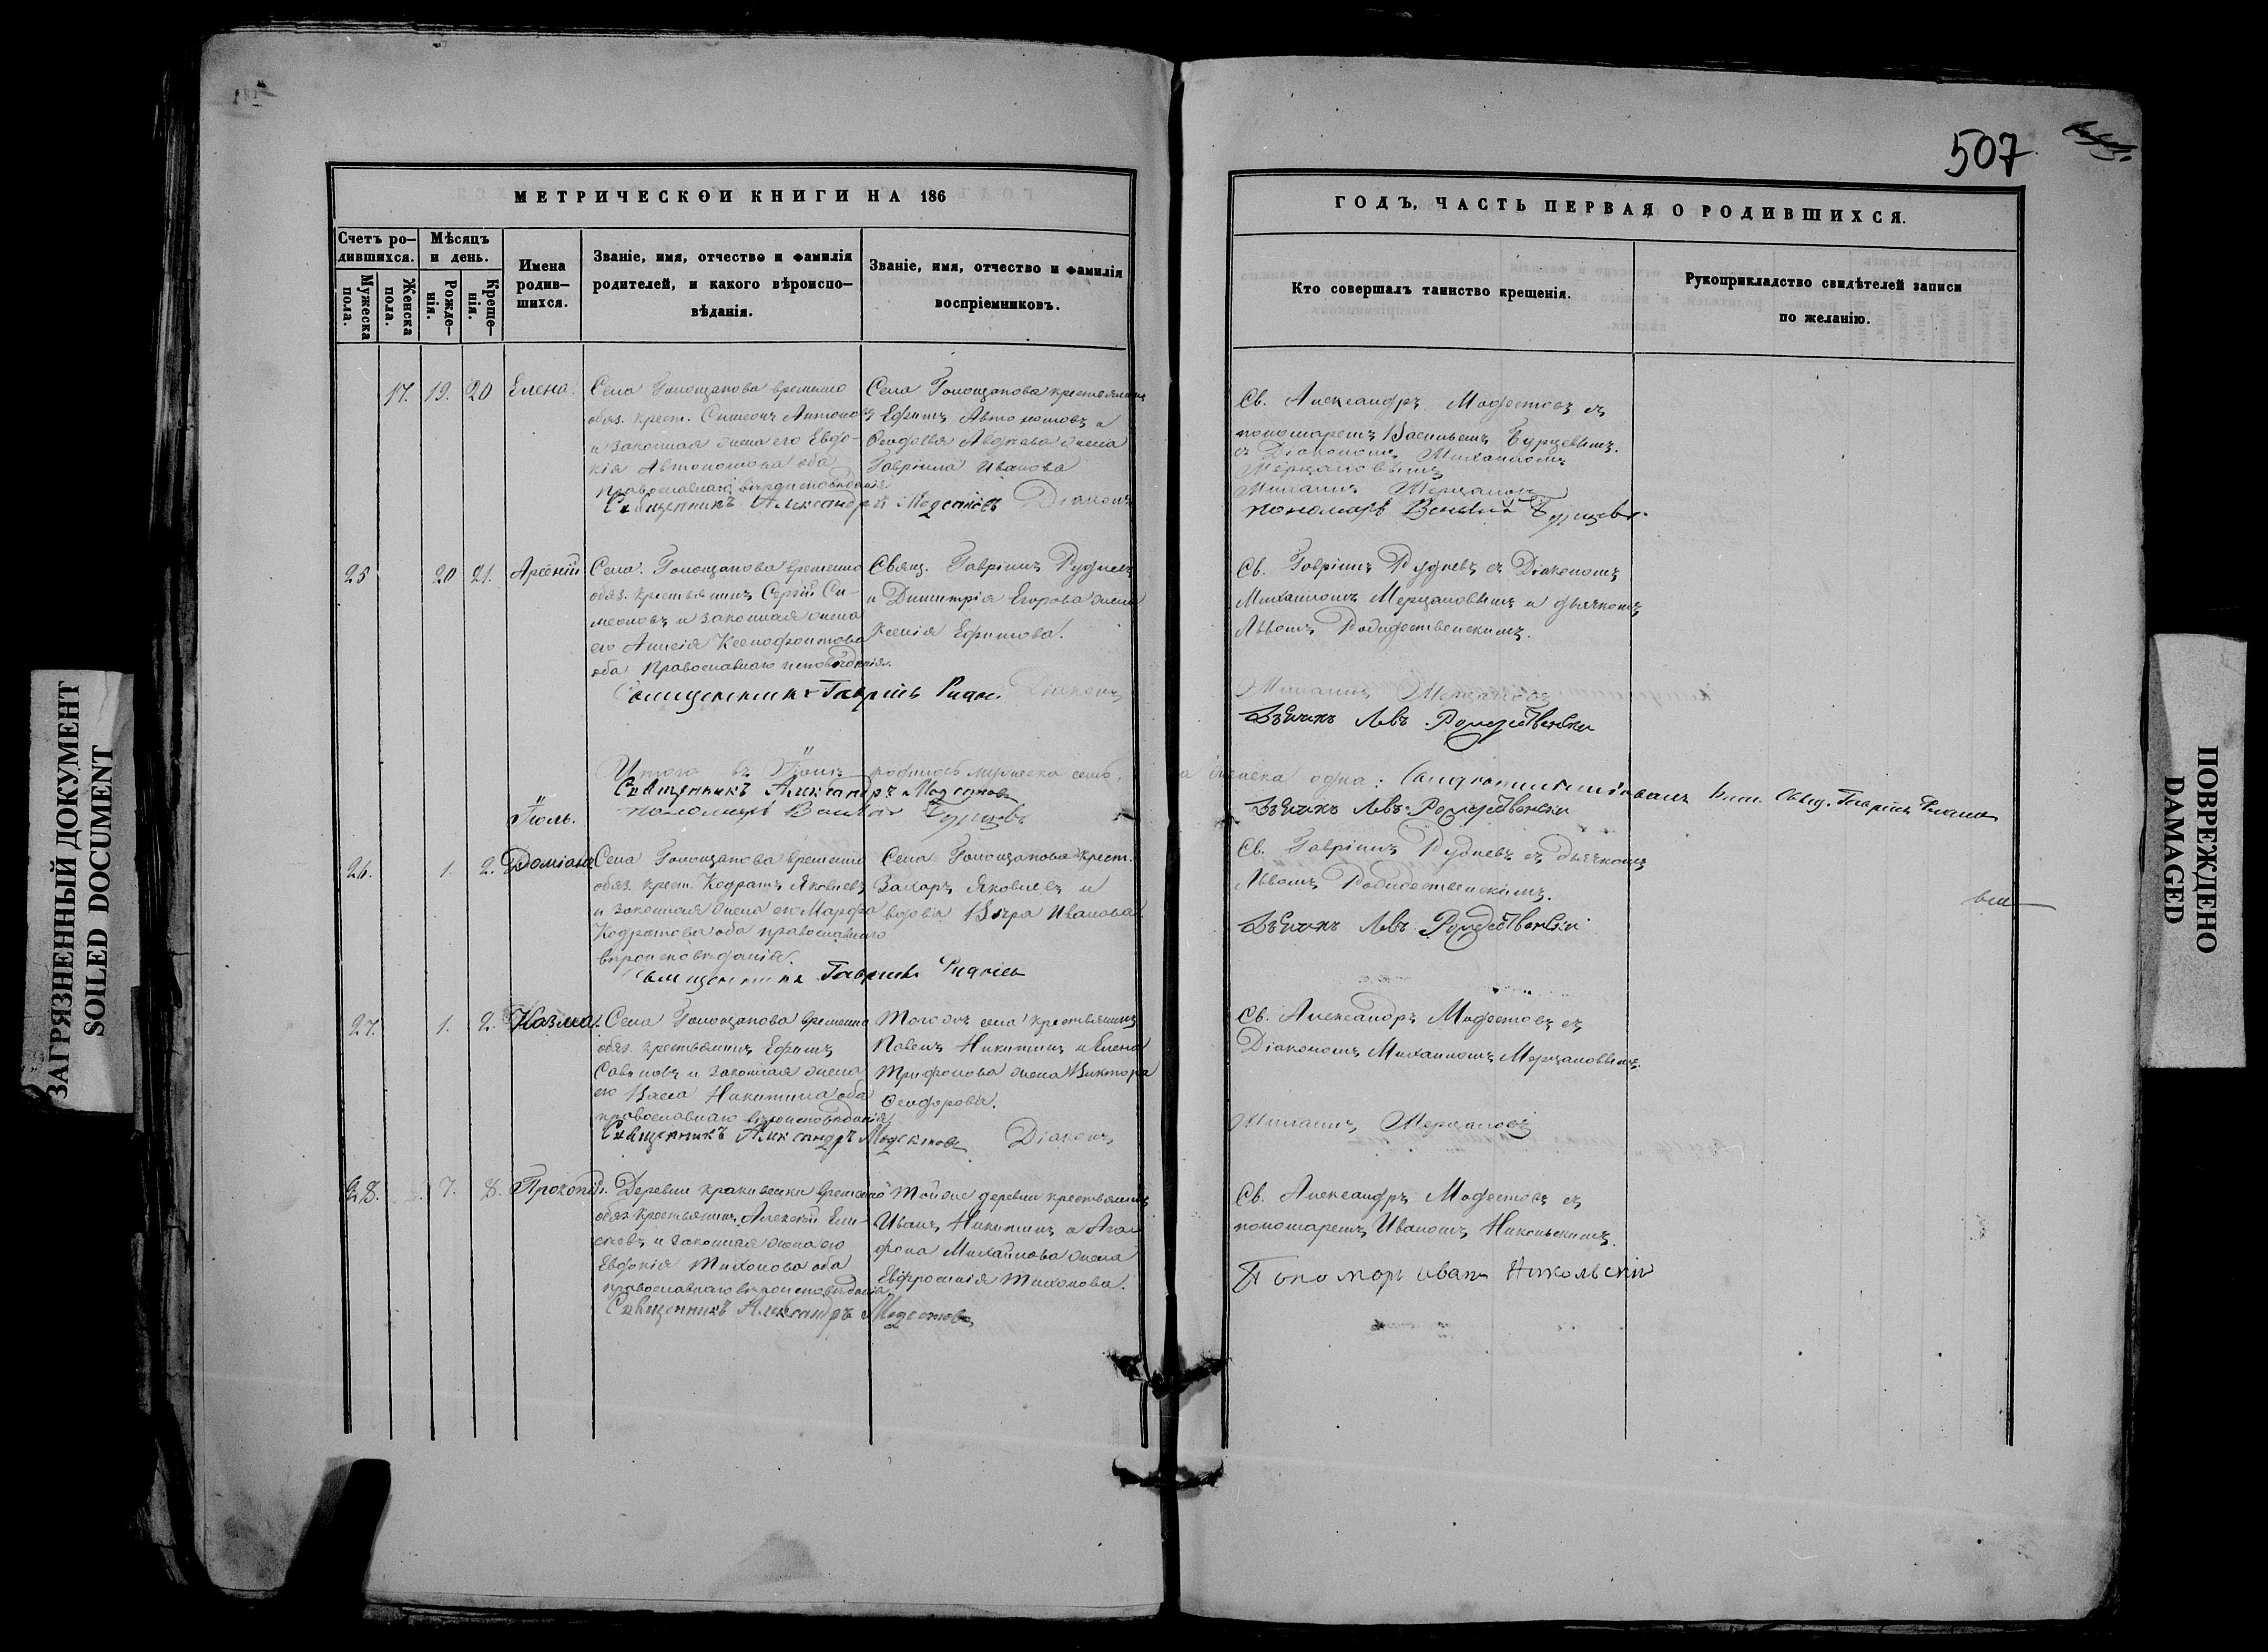 507
МЕТРИЧЕСКОЙ КНИГИ НА 186
Счетъ ро-
дившихся.
Мужеска
пола.
Женска
пола.
Мѣсяцъ
и день.
Рожде-
нія.
Креще-
нія.
Имена
родив-
шихся.
Званіе, имя, отчество и фамилія
родителей, и какого вѣроиспо-
вѣданія.
Званіе, имя, отчество и фамилія
воспріемниковъ.
ГОДЪ, ЧАСТЬ ПЕРВАЯ О РОДИВШИХСЯ.
Кто совершалъ таинство крещенія.
Рукоприкладство свидѣтелей записи
по желанію.
17. 19. 20 Елена.
Села Голощапова временно
обяз. крест. Симеонъ
и законная жена его Евдо-
кія Автономова оба
православнаго вѣроисповѣданія
Села Голощапова крестьянинъ
Ефимъ Автономовъ и
Феодосія Авдѣева жена
Гавріила Иванова
Священникъ Александръ Модестовъ Діаконъ
Св. Александръ Модестовъ съ
пономаремъ Васильемъ Бурцевымъ.
съ Діакономъ Михаиломъ
Мерцаловымъ
Михаилъ Мерцаловъ
пономарь Василій Бурцевъ.
25 20 21. Арсеній
Села. Голощапова временно
обяз. крестьянинъ Сергій Си-
меоновъ и законная жена
его Анисія Ксенофонтова
оба Православнаго исповѣданія.
Свящ. Гавріилъ Рудневъ
и Димитрія Егорова жена
Ксенія Ефимова.
Священникъ Гавріилъ Рудневъ Діаконъ
Св. Гавріилъ Рудневъ съ Діакономъ
Михаиломъ Мерцаловымъ и дьячкомъ
Львомъ Рождественскимъ.
Михаилъ Мерцаловъ
Дьячокъ Левъ Рождественски
Итого въ Іюнѣ родилось мужеска семь, а женска одна:
Священникъ Александръ Модестовъ
пономарь Василій Бурцевъ
Дьячокъ Левъ Рождественски
Іюль.
26. 1. 2. Доміанъ
Села Голощапова временно
обяз. крест. Кодратъ Яковлевъ
и законная жена его Марфа
Кодратова оба православнаго
вѣроисповѣданія.
Села Голощапова крест.
Захаръ Яковлевъ и
вдова Вѣра Иванова.
Священникъ Гавріилъ Рудневъ
Св. Гавріилъ Рудневъ съ Дьячкомъ
Львомъ Рождественскимъ.
Дьячокъ Левъ Рождественски
27. 1. 2. Козма.
Села Голощапова временно
обяз. крестьянинъ Ефимъ
Савиновъ и законная жена
его Васса Никитина оба
православнаго вѣроисповѣданія
Тогожъ села крестьянинъ
Павелъ Никитинъ и Елена
Трифонова жена Виктора
Феодорова.
Священникъ Александръ Модестовъ Діаконъ
Св. Александръ Модестовъ съ
Діакономъ Михаиломъ Мерцаловымъ.
Михаилъ Мерцаловъ
28. 7. 8. Прокопій.
Деревни временно
обяз. крестьянинъ Алексѣй Ели-
сѣевъ и законная жена его
Евдокія Тихонова оба
православнаго вѣроисповѣданія
Тойже деревни крестьянинъ
Иванъ Никитинъ и Ага-
фона Михайлова жена
Евфросинія Тихонова.
Священникъ Александръ Модестовъ
Св. Александръ Модестовъ съ
пономаремъ Иваномъ Никольскимъ.
Пономарь Иванъ Никольскій
ЗАГРЯЗНЕННЫЙ ДОКУМЕНТ
SOILED DOCUMENT
ПОВРЕЖДЕНО
DAMAGED